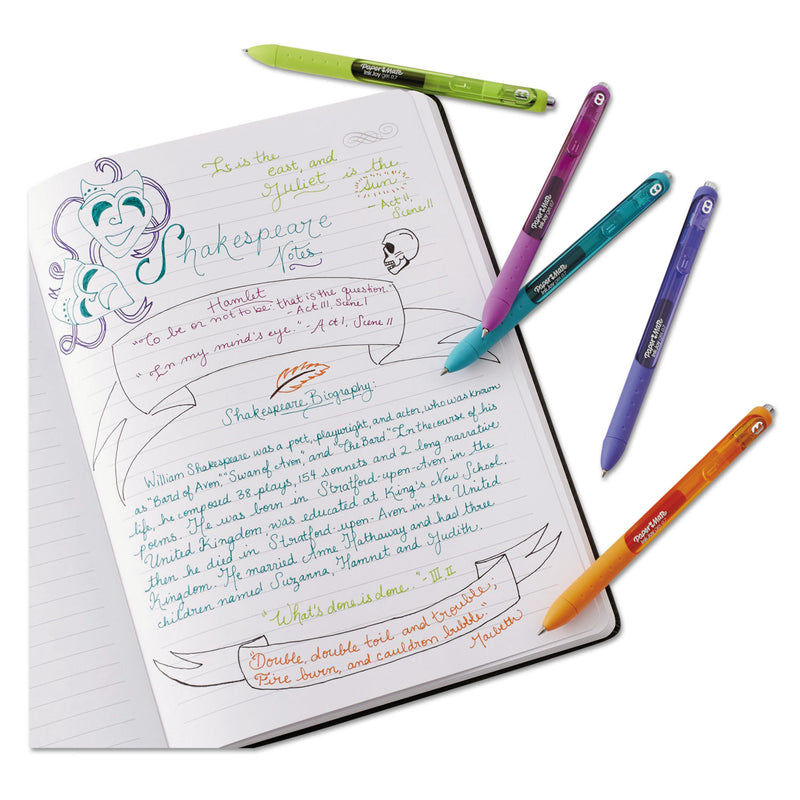 It is the
east, and
Juliet is the
sun.
- Act II,
Scene II
Shakespeare
Notes
Hamlet
"To be or not to be: that is the question."
- Act III, Scene I
"In my mind's eye." - Act I, Scene II
Shakespeare Biography:
William Shakespeare was a poet, playwright, and actor, who was known
as "Bard of Avon," "Swan of Avon", and "The Bard." In the course of his
life, he composed 38 plays, 154 sonnets and 2 long narrative
poems. He was born in Stratford-upon-Avon in the
United Kingdom was educated at King's New School.
then he died in Stratford-upon-Avon in the United
Kingdom. He married Anne Hathaway and had three
children named Suzanna, Hamnet and Judith.
"What's done is done." - III, II
"Double, double toil and trouble;
Fire burn, and cauldron bubble."
Macbeth
Paper Mate
InkJoy gel 0.7
Paper Mate
InkJoy gel 0.7
Paper Mate
InkJoy gel 0.7
Paper Mate
InkJoy gel 0.7
Paper Mate
InkJoy gel 0.7